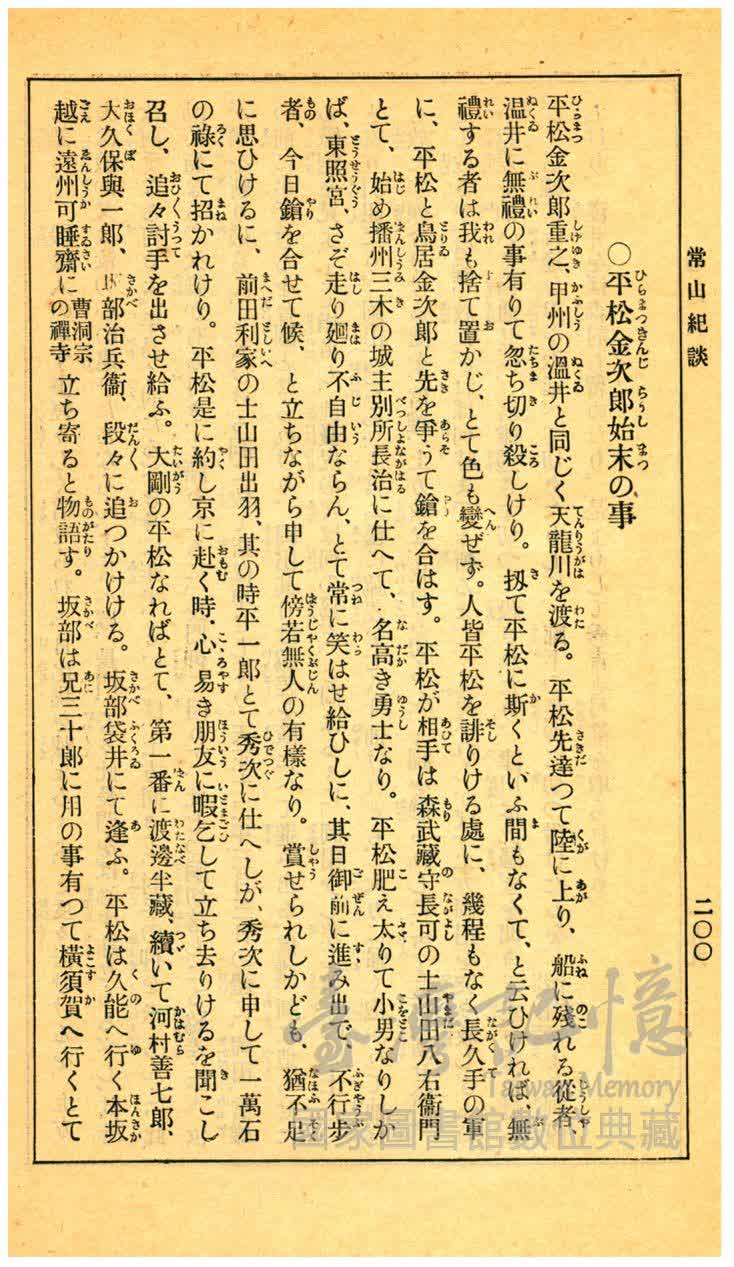 常山紀談
二〇〇
〇平松金次郎始末の事
平松金次郎重之、甲州の溫井と同じく天龍川を渡る。平松先達つて陸に上り、船に殘れる從者、
溫井に無禮の事有りて忽ち切り殺しけり。扨て平松に斯くといふ間もなくて、と云ひければ、無
禮する者は我も捨て置かじ、とて色も變ぜず。人皆平松を誹りける處に、幾程もなく長久手の軍
に、平松と鳥居金次郎と先を爭うて鎗を合はす。平松が相手は森武藏守長可の士山田八右衞門
とて、始め播州三木の城主別所長治に仕へて、名高き勇士なり。平松肥え太りて小男なりしか
ば、東照宮、さぞ走り廻り不自由ならん、とて常に笑はせ給ひしに、其日御前に進み出で、不行步
者、今日鎗を合せて候、と立ちながら申して傍若無人の有樣なり。賞せられしかども、猶不足
に思ひけるに、前田利家の士山田出羽、其の時平一郎とて秀次に仕へしが、秀次に申して一萬石
の祿にて招かれけり。平松是に約し京に赴く時、心易き朋友に暇乞して立ち去りけるを聞こし
召し、追々討手を出させ給ふ。大剛の平松なればとて、第一番に渡邊半藏、續いて河村善七郎、
大久保與一郎、坂部治兵衞、段々に追つかけける。坂部袋井にて逢ふ。平松は久能へ行く本坂
越に遠州可睡齋に曹洞宗の禪寺立ち寄ると物語す。坂部は兄三十郎に用の事有つて橫須賀へ行くとて
臺灣記憶
Taiwan Memory
國家圖書館數位典藏